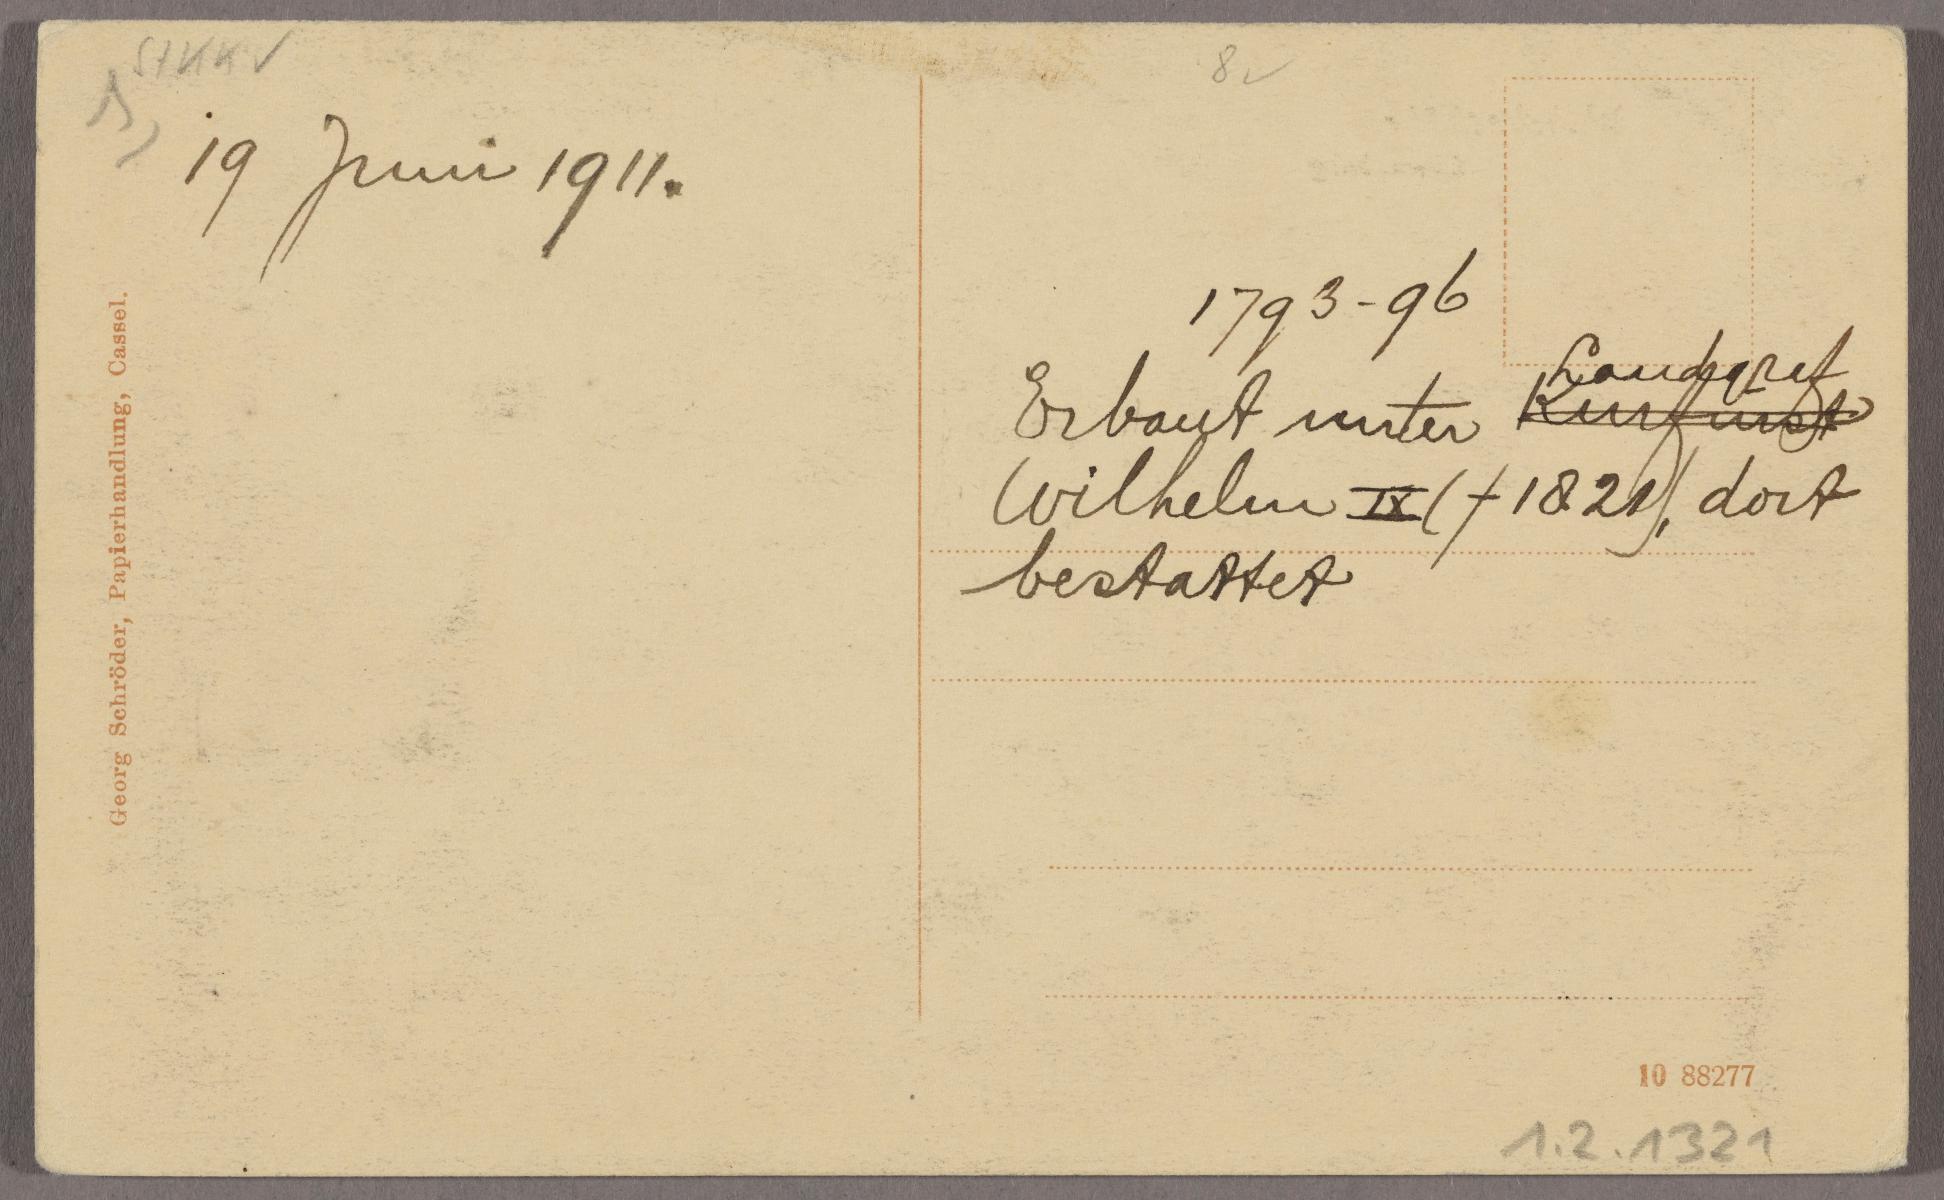 8
19 Juni 1911.
Georg Schröder, Papierhandlung, Cassel.
1793-96
Landgraf
Erbaut unter Kurfürst
Wilhelm IX († 1821), dort
bestattet
10 88277
1.2.1321